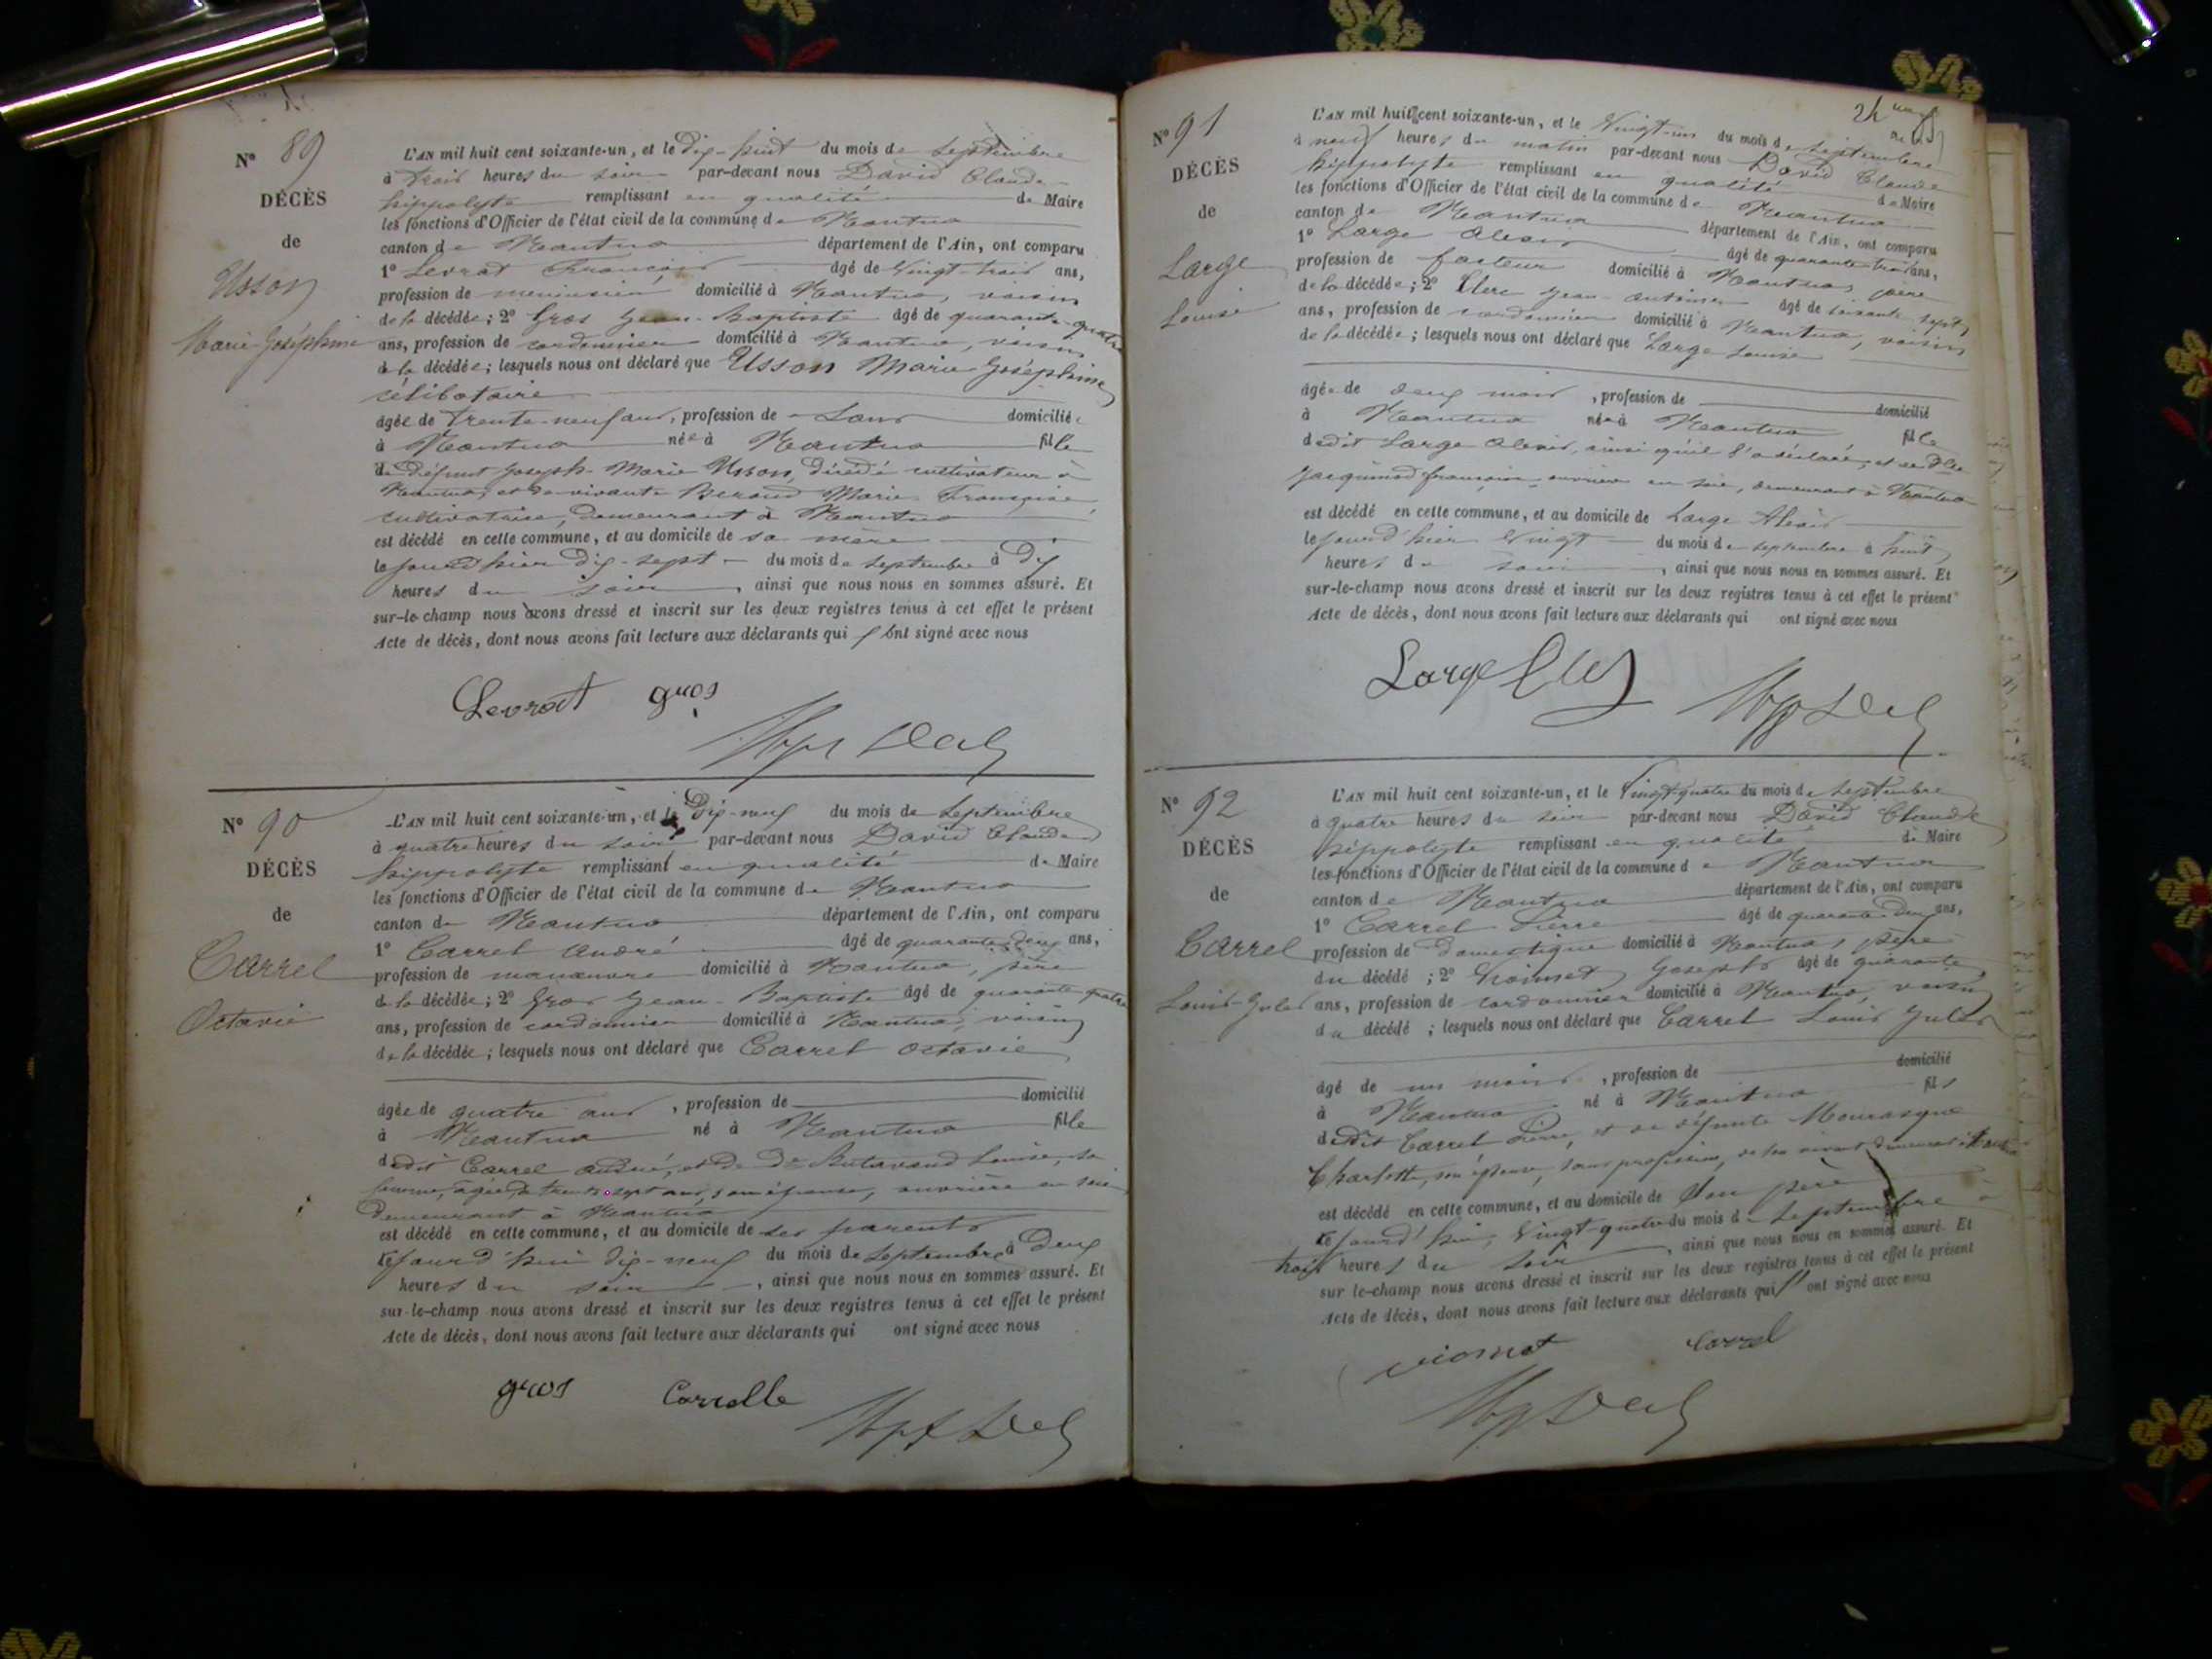 N° 89
DÉCÈS
de
Usson
Marie-Joséphine
L'AN mil huit cent soixante-un, et le Dix-huit du mois de Septembre
à trois heures du soir par-devant nous David Claude
hippolyte remplissant en qualité de Maire
les fonctions d'Officier de l'état civil de la commune de Nantua
canton de Nantua département de l'Ain, ont comparu
1° Levrat François âgé de vingt-trois ans,
profession de menuisier domicilié à Nantua, voisin
de la décédée; 2° Gros Jean-Baptiste âgé de quarante-quatre
ans, profession de cordonnier domicilié à Nantua, voisin
de la décédée; lesquels nous ont déclaré que Usson Marie Joséphine
célibataire
âgée de trente-neuf ans, profession de Sans domiciliée
à Nantua née à Nantua fille
de défunt Joseph-Marie Usson, décédé cultivateur à
Nantua, et de vivante Beraud Marie Françoise,
cultivatrice, demeurant à Nantua
est décédé en cette commune, et au domicile de sa mère
le jourd'hier dix-sept du mois de septembre à Dix
heures du soir, ainsi que nous nous en sommes assuré. Et
sur-le-champ nous avons dressé et inscrit sur les deux registres tenus à cet effet le présent
Acte de décès, dont nous avons fait lecture aux déclarants qui ont signé avec nous
Levrat gros
N° 90
DÉCÈS
de
Carrel
Octavie
L'AN mil huit cent soixante-un, et le Dix-neuf du mois de Septembre
à quatre heures du soir par-devant nous David Claude
hippolyte remplissant en qualité de Maire
les fonctions d'Officier de l'état civil de la commune de Nantua
canton de Nantua département de l'Ain, ont comparu
1° Carrel André âgé de quarante-deux ans,
profession de manœuvre domicilié à Nantua, père
de la décédée; 2° Gros Jean-Baptiste âgé de quarante quatre
ans, profession de cordonnier domicilié à Nantua, voisin
de la décédée; lesquels nous ont déclaré que Carrel Octavie
âgée de quatre ans, profession de domicilié
à Nantua né à Nantua fille
dudit Carrel André, et de Louise, sa
femme, âgée de trente-sept ans, son épouse, ouvrière en soie
demeurant à Nantua
est décédé en cette commune, et au domicile de ses parents
le jourd'hui dix-neuf du mois de Septembre à Deux
heures du soir, ainsi que nous nous en sommes assuré. Et
sur-le-champ nous avons dressé et inscrit sur les deux registres tenus à cet effet le présent
Acte de décès, dont nous avons fait lecture aux déclarants qui ont signé avec nous
gros Carrelle
N° 91
DÉCÈS
de
Large
Louise
L'AN mil huit cent soixante-un, et le Vingt-un du mois de Septembre
à neuf heures du matin par-devant nous David Claude
hippolyte remplissant en qualité de Maire
les fonctions d'Officier de l'état civil de la commune de Nantua
canton de Nantua département de l'Ain, ont comparu
1° Large Alexis âgé de quarante-trois ans,
profession de facteur domicilié à Nantua, père
de la décédée; 2° Clerc Jean-Antoine âgé de soixante sept
ans, profession de cordonnier domicilié à Nantua, voisin
de la décédée; lesquels nous ont déclaré que Large Louise
âgée de deux mois, profession de domicilié
à Nantua née à Nantua fille
dudit Large Alexis, ainsi qu'il l'a déclaré, et de
Jacquinod françoise ouvrière en soie, demeurant à Nantua
est décédé en cette commune, et au domicile de Large Alexis
le jourd'hier Vingt du mois de septembre à huit
heures du soir, ainsi que nous nous en sommes assuré. Et
sur-le-champ nous avons dressé et inscrit sur les deux registres tenus à cet effet le présent
Acte de décès, dont nous avons fait lecture aux déclarants qui ont signé avec nous
Large
N° 92
DÉCÈS
de
Carrel
Louis-Jules
L'AN mil huit cent soixante-un, et le Vingt-quatre du mois de Septembre
à quatre heures du soir par-devant nous David Claude
hippolyte remplissant en qualité de Maire
les fonctions d'Officier de l'état civil de la commune de Nantua
canton de Nantua département de l'Ain, ont comparu
1° Carrel Pierre âgé de quarante-deux ans,
profession de Domestique domicilié à Nantua, père
du décédé; 2° Joseph âgé de quarante
ans, profession de cordonnier domicilié à Nantua, voisin
du décédé; lesquels nous ont déclaré que Carrel Louis Jules
âgé de un mois, profession de domicilié
à Nantua né à Nantua fils
dudit Carrel Pierre, et de défunte
Charlotte, son épouse, sans profession, de son vivant demeurant à Nantua
est décédé en cette commune, et au domicile de son père
le jourd'hui, Vingt-quatre du mois de Septembre à
trois heures du soir, ainsi que nous nous en sommes assuré. Et
sur le-champ nous avons dressé et inscrit sur les deux registres tenus à cet effet le présent
Acte de décès, dont nous avons fait lecture aux déclarants qui ont signé avec nous
Carrel